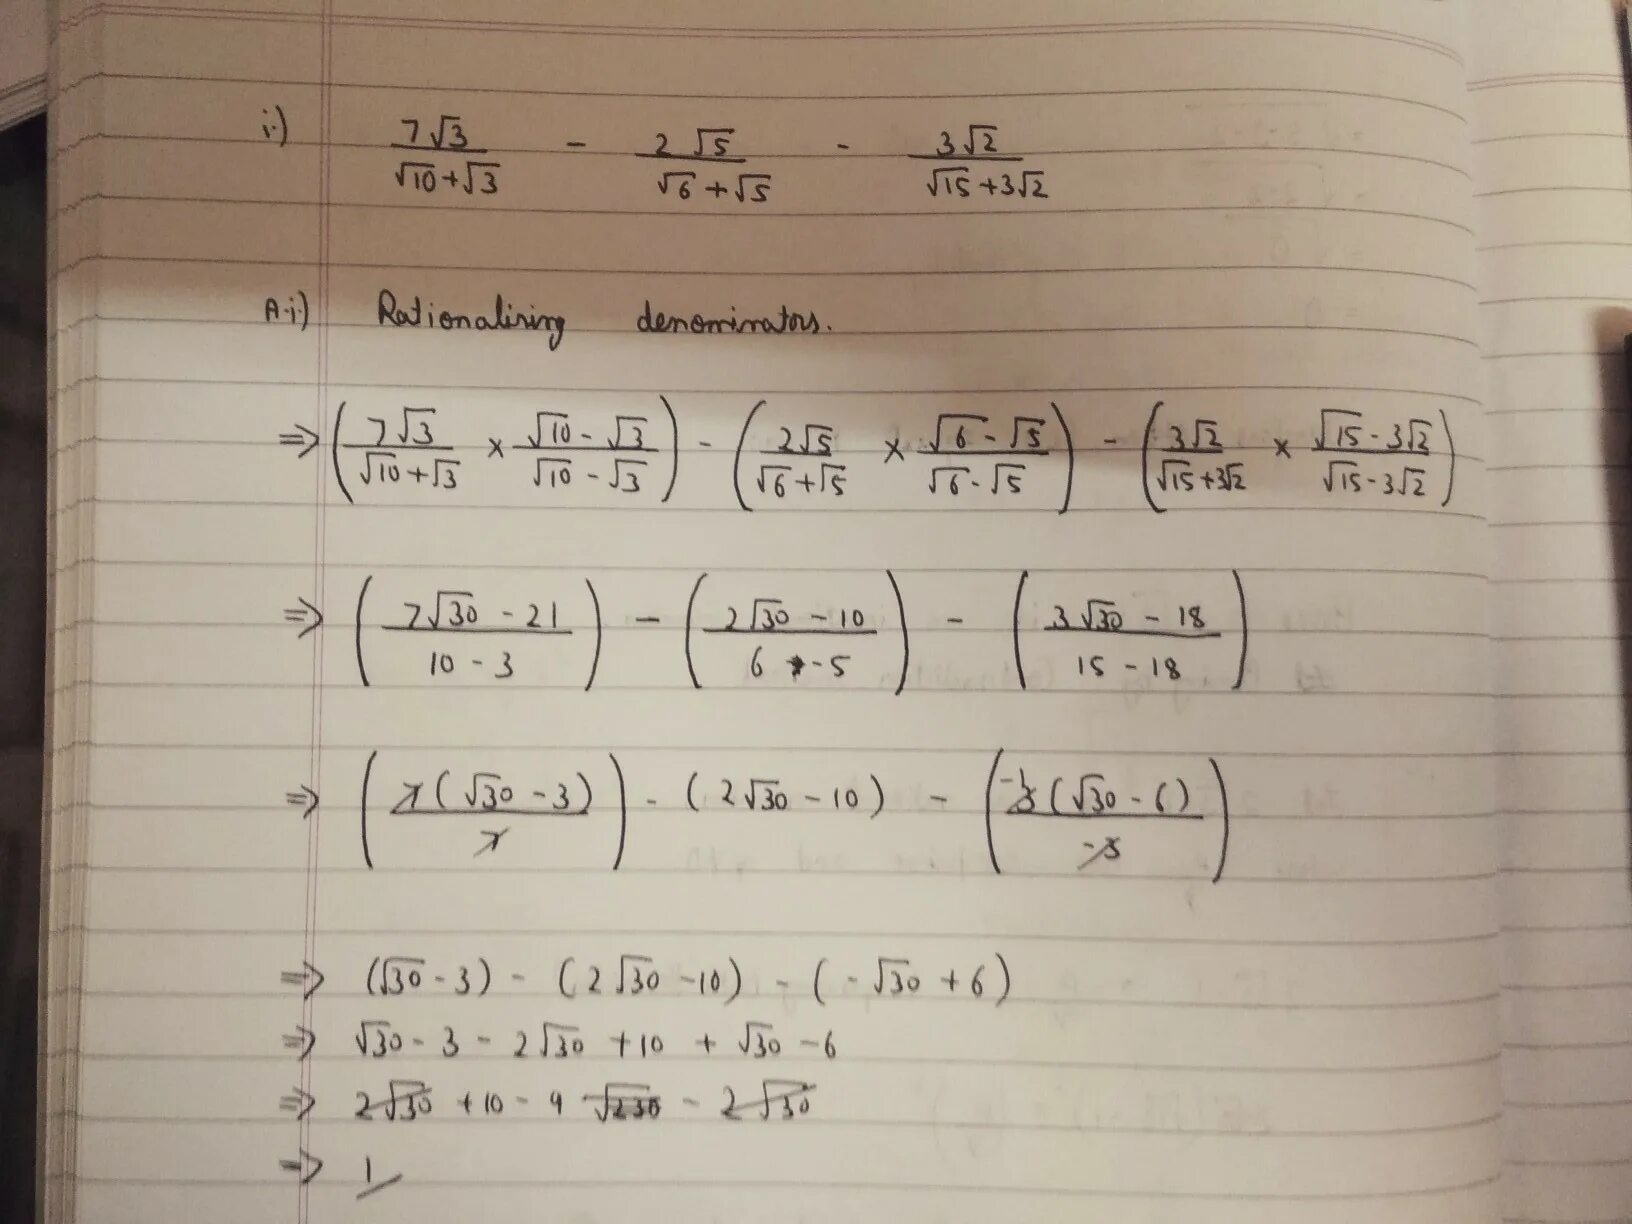 i.) 7√3/(√10+√3) - 2√5/(√6+√5) - 3√2/(√15+3√2)
A.i.) Rationalising denominators.
⇒ (7√3/(√10+√3) × (√10-√3)/(√10-√3)) - (2√5/(√6+√5) × (√6-√5)/(√6-√5)) - (3√2/(√15+3√2) × (√15-3√2)/(√15-3√2))
⇒ ((7√30-21)/(10-3)) - ((2√30-10)/(6-5)) - ((3√30-18)/(15-18))
⇒ (7(√30-3)/7) - (2√30-10) - (-1 3(√30-6)/-3)
⇒ (√30-3) - (2√30-10) - (-√30+6)
⇒ √30-3-2√30+10+√30-6
⇒ 2√30+10-9 √230-2√30
⇒ 1